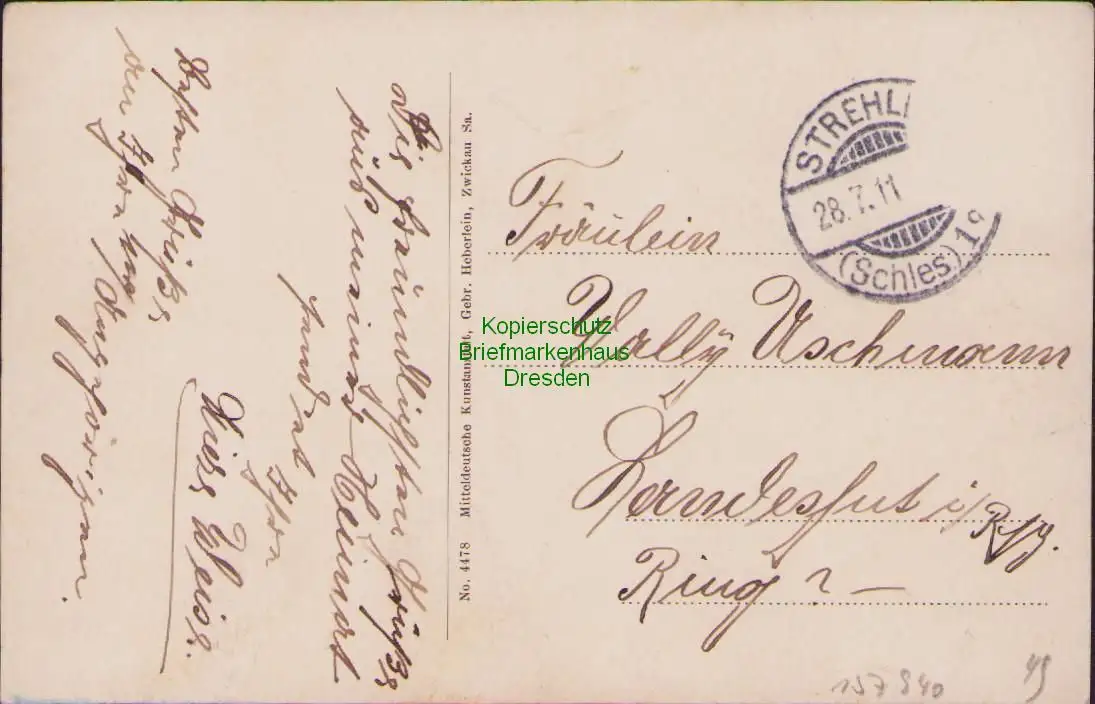 Die freundlichsten Grüße
aus meiner Heimat
sendet
Ihr
Besten Grüße
an Ihre
Angehörigen.
No. 4478 Mitteldeutsche Kunstanstalt, Gebr. Heberlein, Zwickau Sa.
STREHL
28.7.11
(Schles) 1
Fräulein
Wally Uschmann
Landeshut i/
Ring ? —
Kopierschutz
Briefmarkenhaus
Dresden
157940